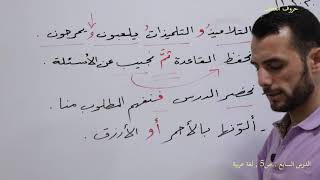 حروف
التلاميذُ و التلميذاتُ يلعبون و يمرحون .
نحفظ القاعدة ثمَّ نجيب عن الأسئلة .
نحضر الدرس فنفهم المطلوب منا .
بالأحمر أو الأزرق .
الدرس السابع ، ص5 ، لغة عربية